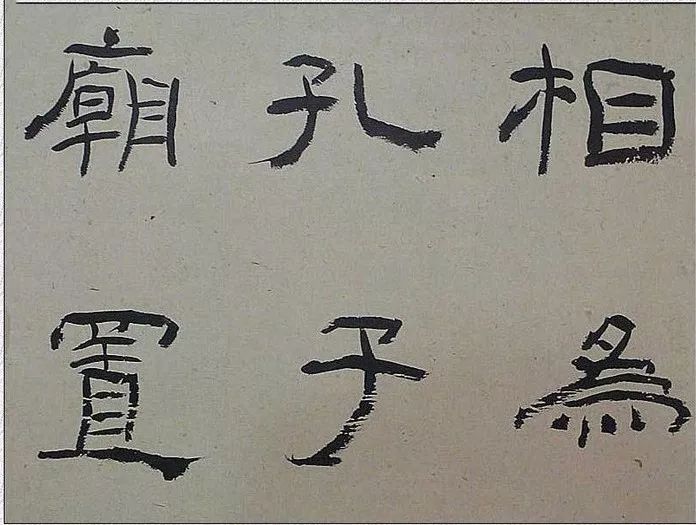 相為
孔子
廟置